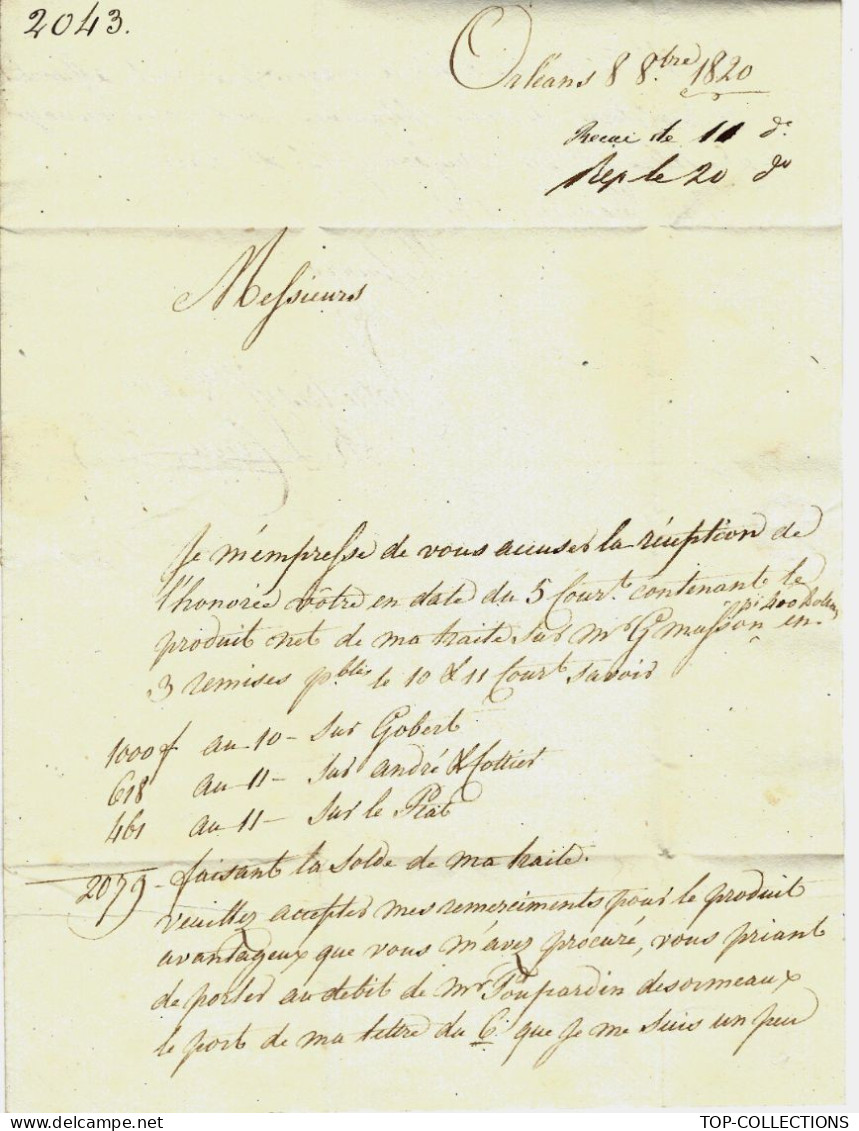 2043.
Orléans 8 8.bre 1820
Recue le 11 do
Rep le 20 do
Messieurs
Je m'empresse de vous accuser la réception de
l'honorée vôtre en date du 5 Court. contenant le
produit net de ma traite sur mr G Masson en
pr 400 Dollars
3 remises pbles le 10 & 11 Court savoir
1000f au 10 - sur Gobert
618 au 11 - sur andré & Cottier
461 au 11 - sur le Prat
2079 - faisant la solde de ma traite.
veuillez accepter mes remerciments pour le produit
avantageux que vous m'avez procuré, vous priant
de porter au debit de mr. Poupardin desormeaux
le port de ma lettre du 6 que je me suis un peu
TOP-COLLECTIONS